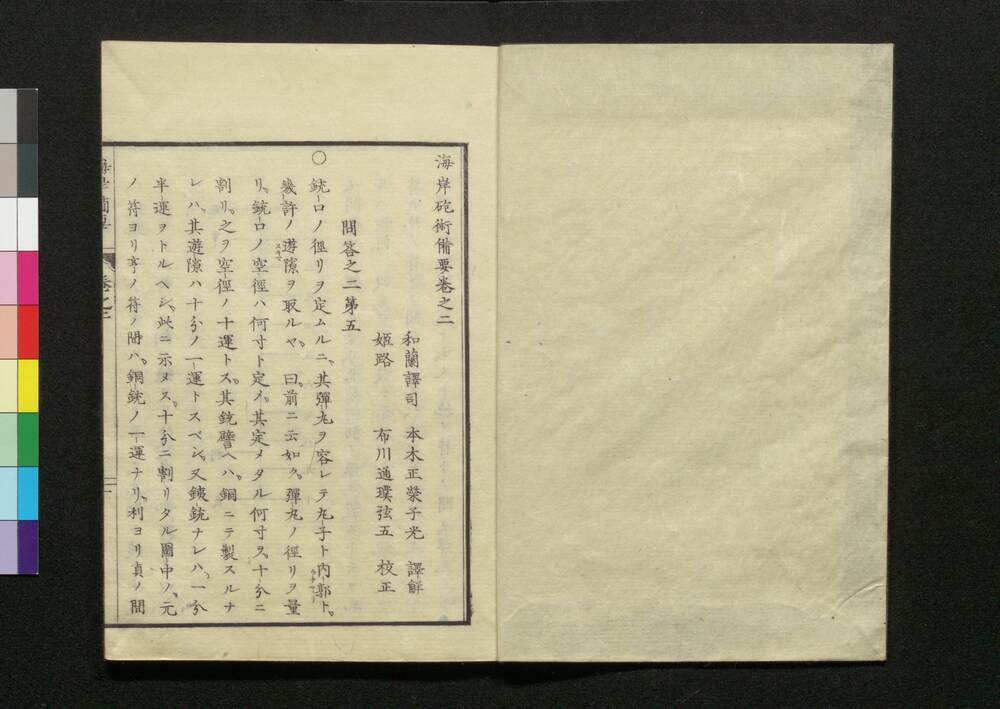 海岸砲術備要巻之二
和蘭譯司 本木正榮子光 譯觧
姫路 布川通璞弦五 校正
問答之二第五
〇銃口ノ徑リヲ定ムルニ、其彈丸ヲ容レテ丸子ト内郭ト。
幾許ノ遊隙ヲ取ルヤ。曰。前ニ云如ク。彈丸ノ徑リヲ量
リ、銃口ノ空徑ハ何寸ト定メ。其定メタル何寸ヲ、十分ニ
割リ。之ヲ空徑ノ十運トス。其銃譬ヘハ。銅ニテ製スルナ
レハ、其遊隙ハ十分ノ一運トスベシ。又銕銃ナレハ、一分
半運ヲトルヘシ。此ニ示ヌス。十分ニ割リタル圖中ノ、元
ノ符ヨリ亨ノ符ノ間ハ。銅銃ノ一運ナリ、利ヨリ貞ノ間